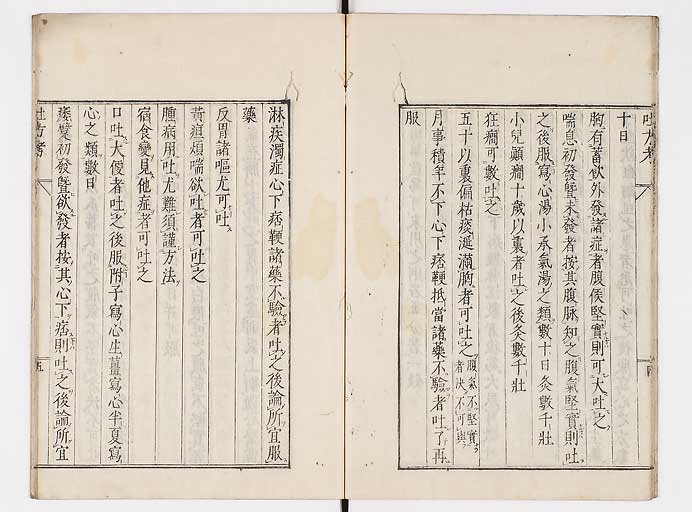 吐方考
十日
胸有蓄飲外發諸症者腹候堅實則可大吐之
喘息初發暨未發者按其腹脉知之腹氣堅實則吐
之後服寫心湯小承氣湯之類數十日灸數千壯
小兒顚癇十歲以裏者吐之後灸數千壯
狂癇可數吐之
五十以裏偏枯痰涎滿胸者可吐之腹氣不堅實
者決不可與
月事積年不下心下痞鞕抵當諸藥不驗者吐了再
服
四
淋疾濁症心下痞鞕諸藥不驗者吐之後論所宜服
藥
反胃諸嘔尤可吐
黃疸煩喘欲吐者可吐之
腫病用吐尤難須謹方法
宿食變見他症者可吐之
口吐大便者吐之後服附子寫心生薑寫心半夏寫
心之類數日
痿躄初發暨欲發者按其心下痞則吐之後論所宜
吐方考
五